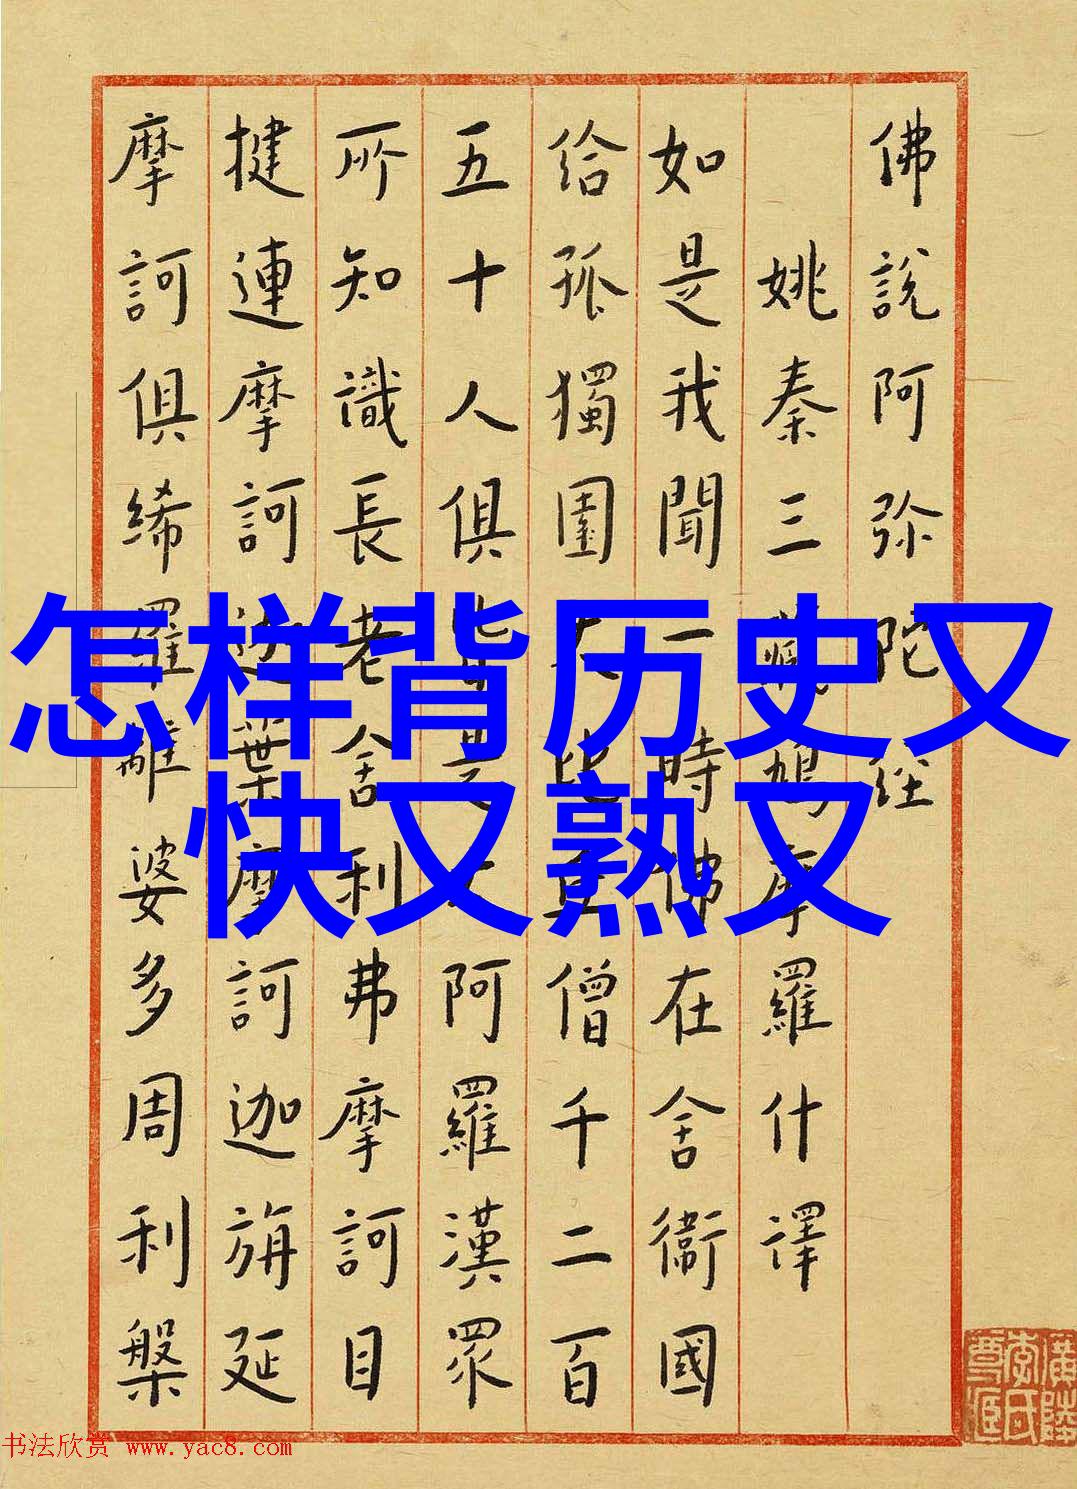 佛說阿弥陀经
姚秦三藏鳩摩羅什譯
如是我聞一時佛在舍衞國
给孤獨園大比丘僧千二百
五十人俱皆是大阿羅漢眾
所知識長老舍利弗摩訶目
揵連摩訶迦葉摩訶迦旃延
摩訶俱絺羅離婆多周利槃
怎样背历史又
快又熟又
书法欣赏 www.yac8.com